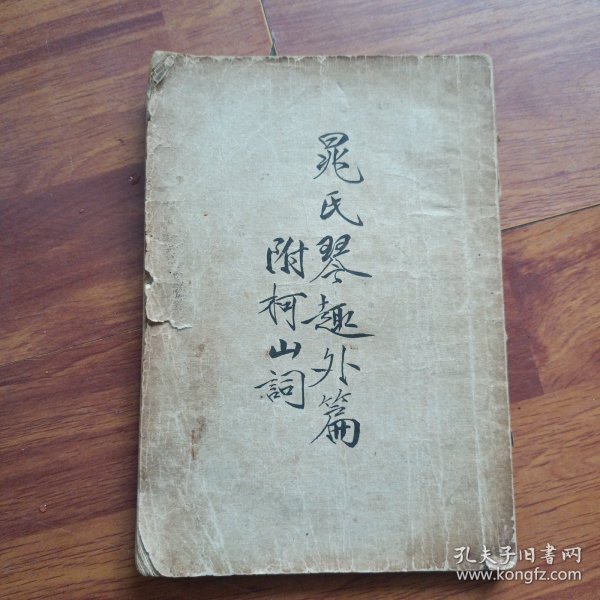 晁氏琴趣外篇
附柯山詞
孔夫子旧書网
www.kongfz.com